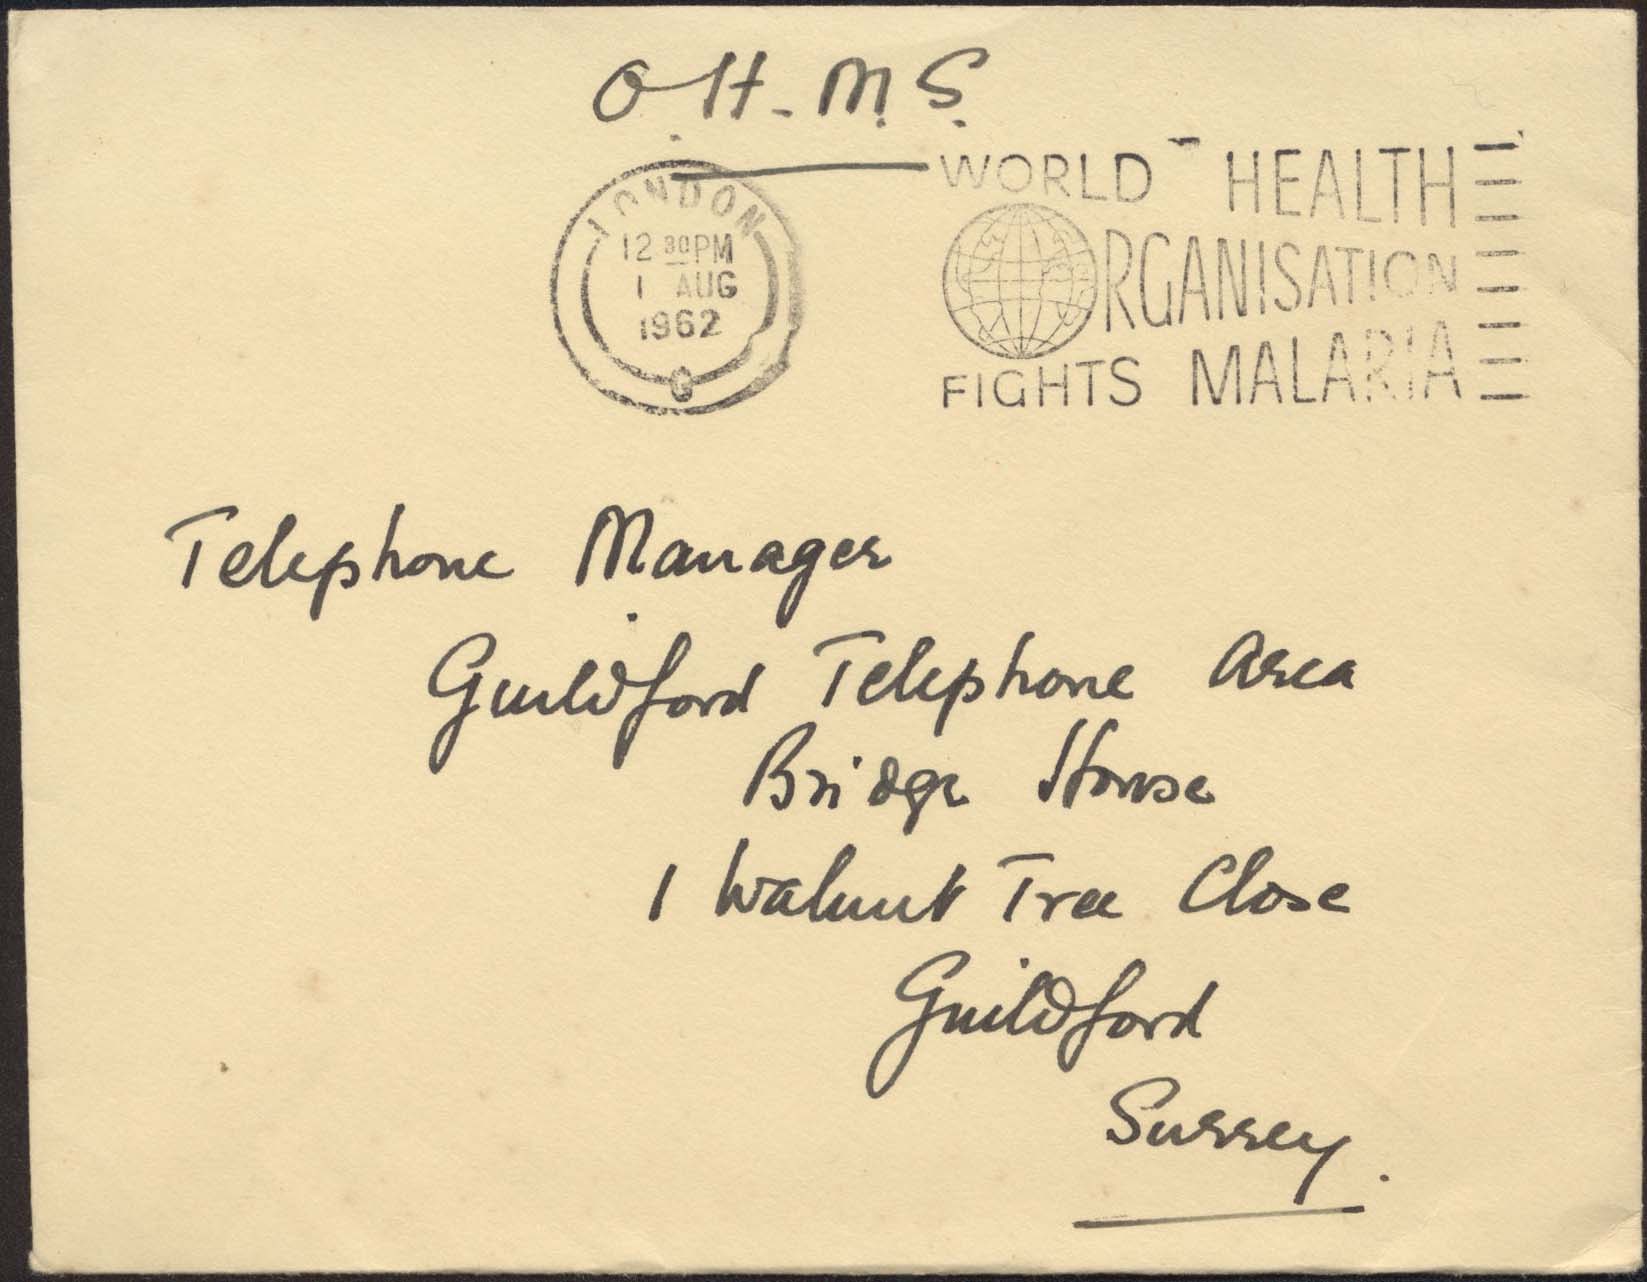 O.H.M.S.
LONDON
12 30PM
1 AUG
1962
C
WORLD HEALTH
ORGANISATION
FIGHTS MALARIA
Telephone Manager
Guildford Telephone Area
Bridge House
1 Walnut Tree Close
Guildford
Surrey.